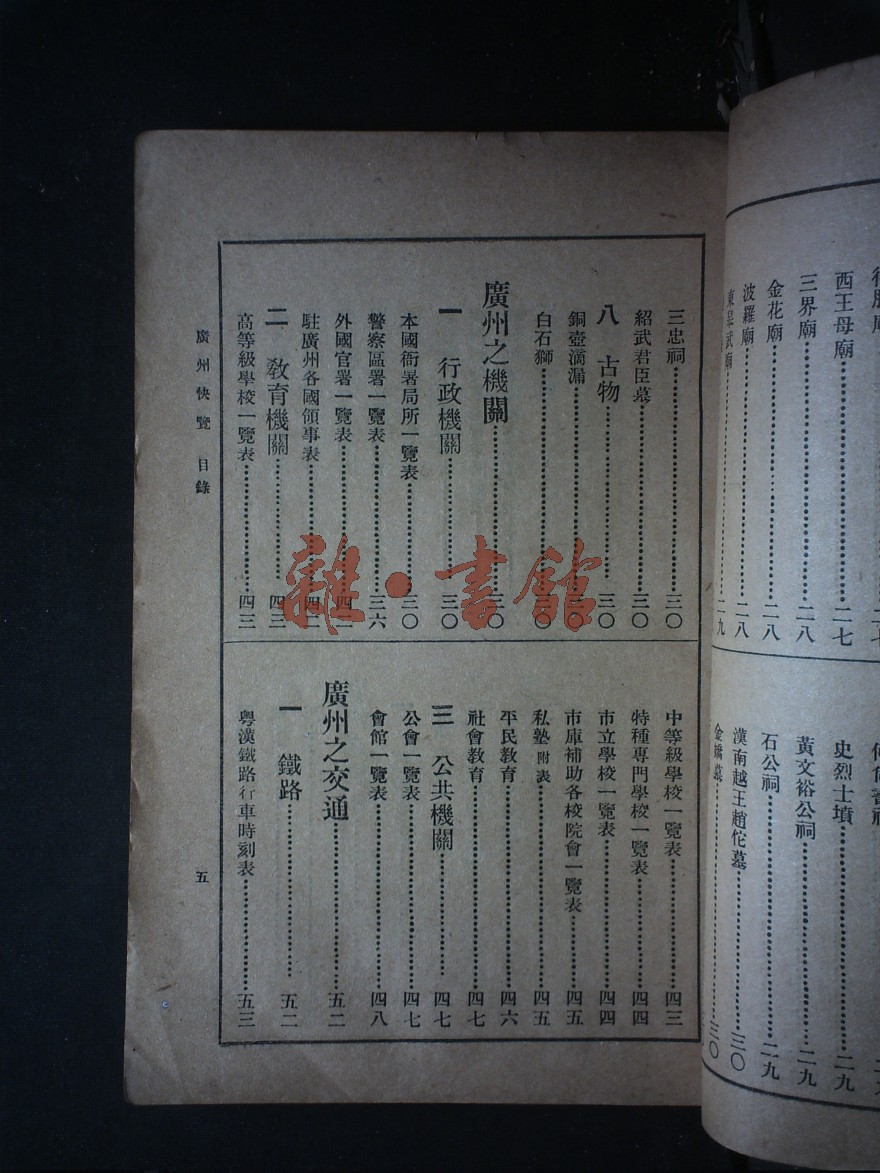 西王母廟……二七
三界廟……二八
金花廟……二八
波羅廟……二八
武廟……二九
史烈士墳……二九
黃文裕公祠……二九
石公祠……二九
漢南越王趙佗墓……三〇
三〇
三忠祠……三〇
紹武君臣墓……三〇
八 古物……三〇
銅壺滴漏……三〇
白石獅……三〇
廣州之機關……三〇
一 行政機關……三〇
本國衙署局所一覽表……三〇
警察區署一覽表……三六
外國官署一覽表……四二
駐廣州各國領事表……四二
二 教育機關……四三
高等級學校一覽表……四三
中等級學校一覽表……四三
特種專門學校一覽表……四四
市立學校一覽表……四四
市庫補助各校院會一覽表……四五
私塾附表……四五
平民教育……四六
社會教育……四七
三 公共機關……四七
公會一覽表……四七
會館一覽表……四八
廣州之交通……五二
一 鐵路……五二
粵漢鐵路行車時刻表……五三
廣州快覽 目錄
五
雜·書館